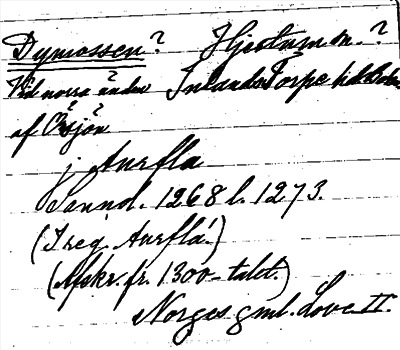 Dymossen? Hjertum sn.?
Vid norra änden Inlands Torpe hd Bohn.
af Örsjön
j Aurfla
Sannol. 1268 l. 1273.
(I reg. Aurflá!)
(Afskr. fr. 1300-talet.)
Norges gml. Love II.